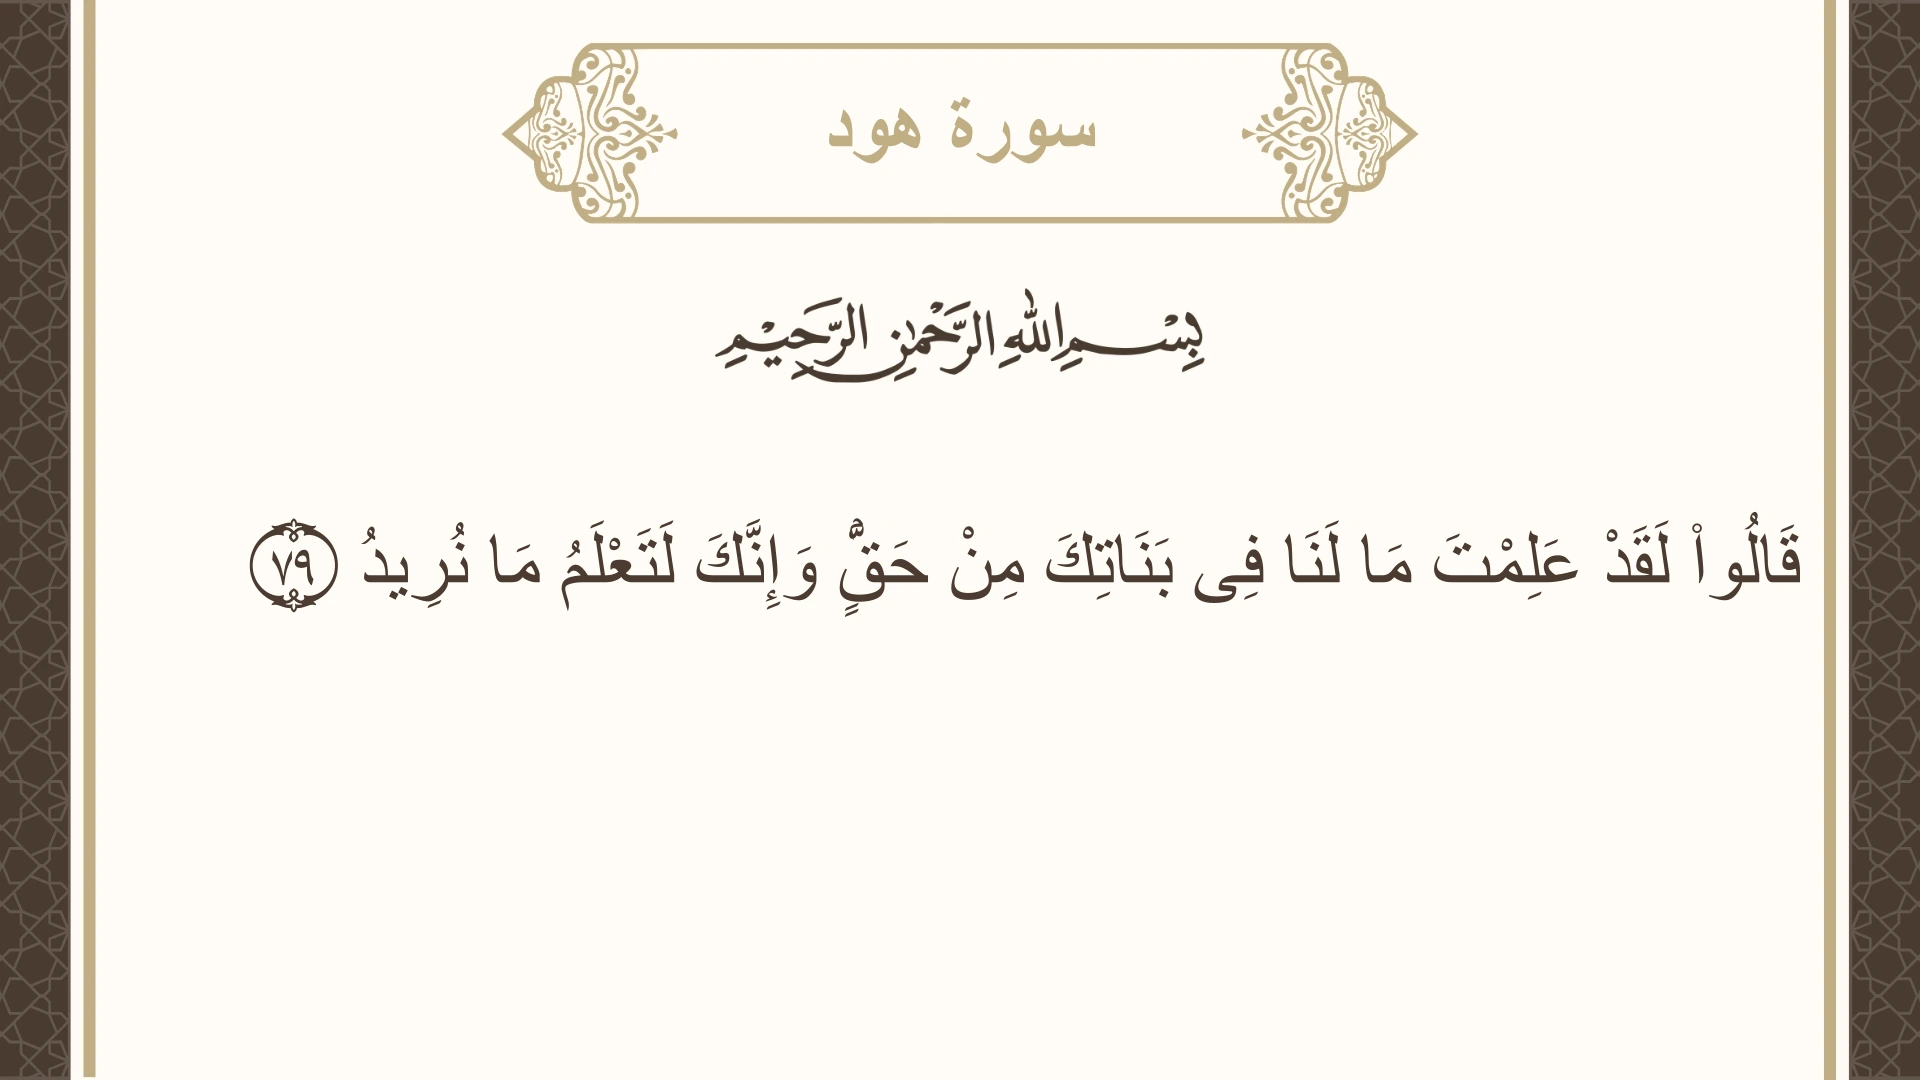 سورة هود
بِسْمِ اللهِ الرَّحْمٰنِ الرَّحِيْمِ
قَالُوا۟ لَقَدْ عَلِمْتَ مَا لَنَا فِى بَنَاتِكَ مِنْ حَقٍّۢ وَإِنَّكَ لَتَعْلَمُ مَا نُرِيدُ ٧٩